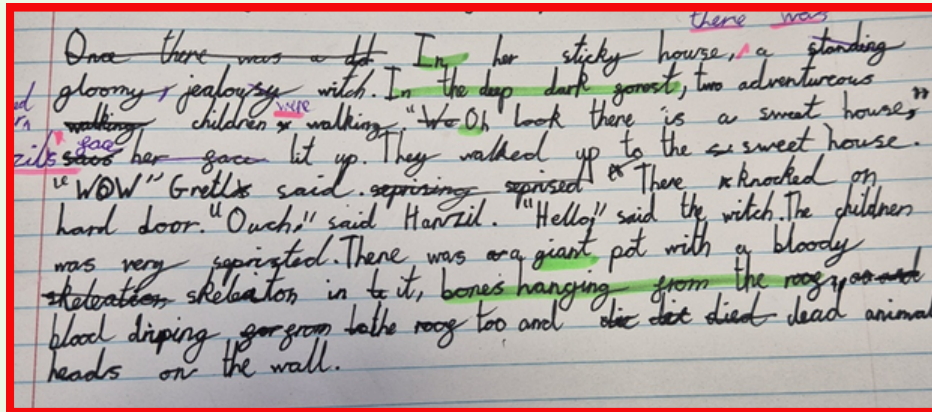 there was
Once there was a In her sticky house, a standing
gloomy, jealousy witch. In the deep dark gorest, two adventureous
walking children were walking. "We Oh look there is a sweet house,"
zil's face her gace lit up. They walked up to the sweet house.
"WOW" Gretl said. seprising seprised There knocked on
hard door. "Ouch," said Hanzil. "Hello," said the witch. The children
was very seprizted. There was a giant pot with a bloody
skeleaton skeleaton in it, bones hanging from the roog,
blood driping from the roog too and died dead animal
heads on the wall.